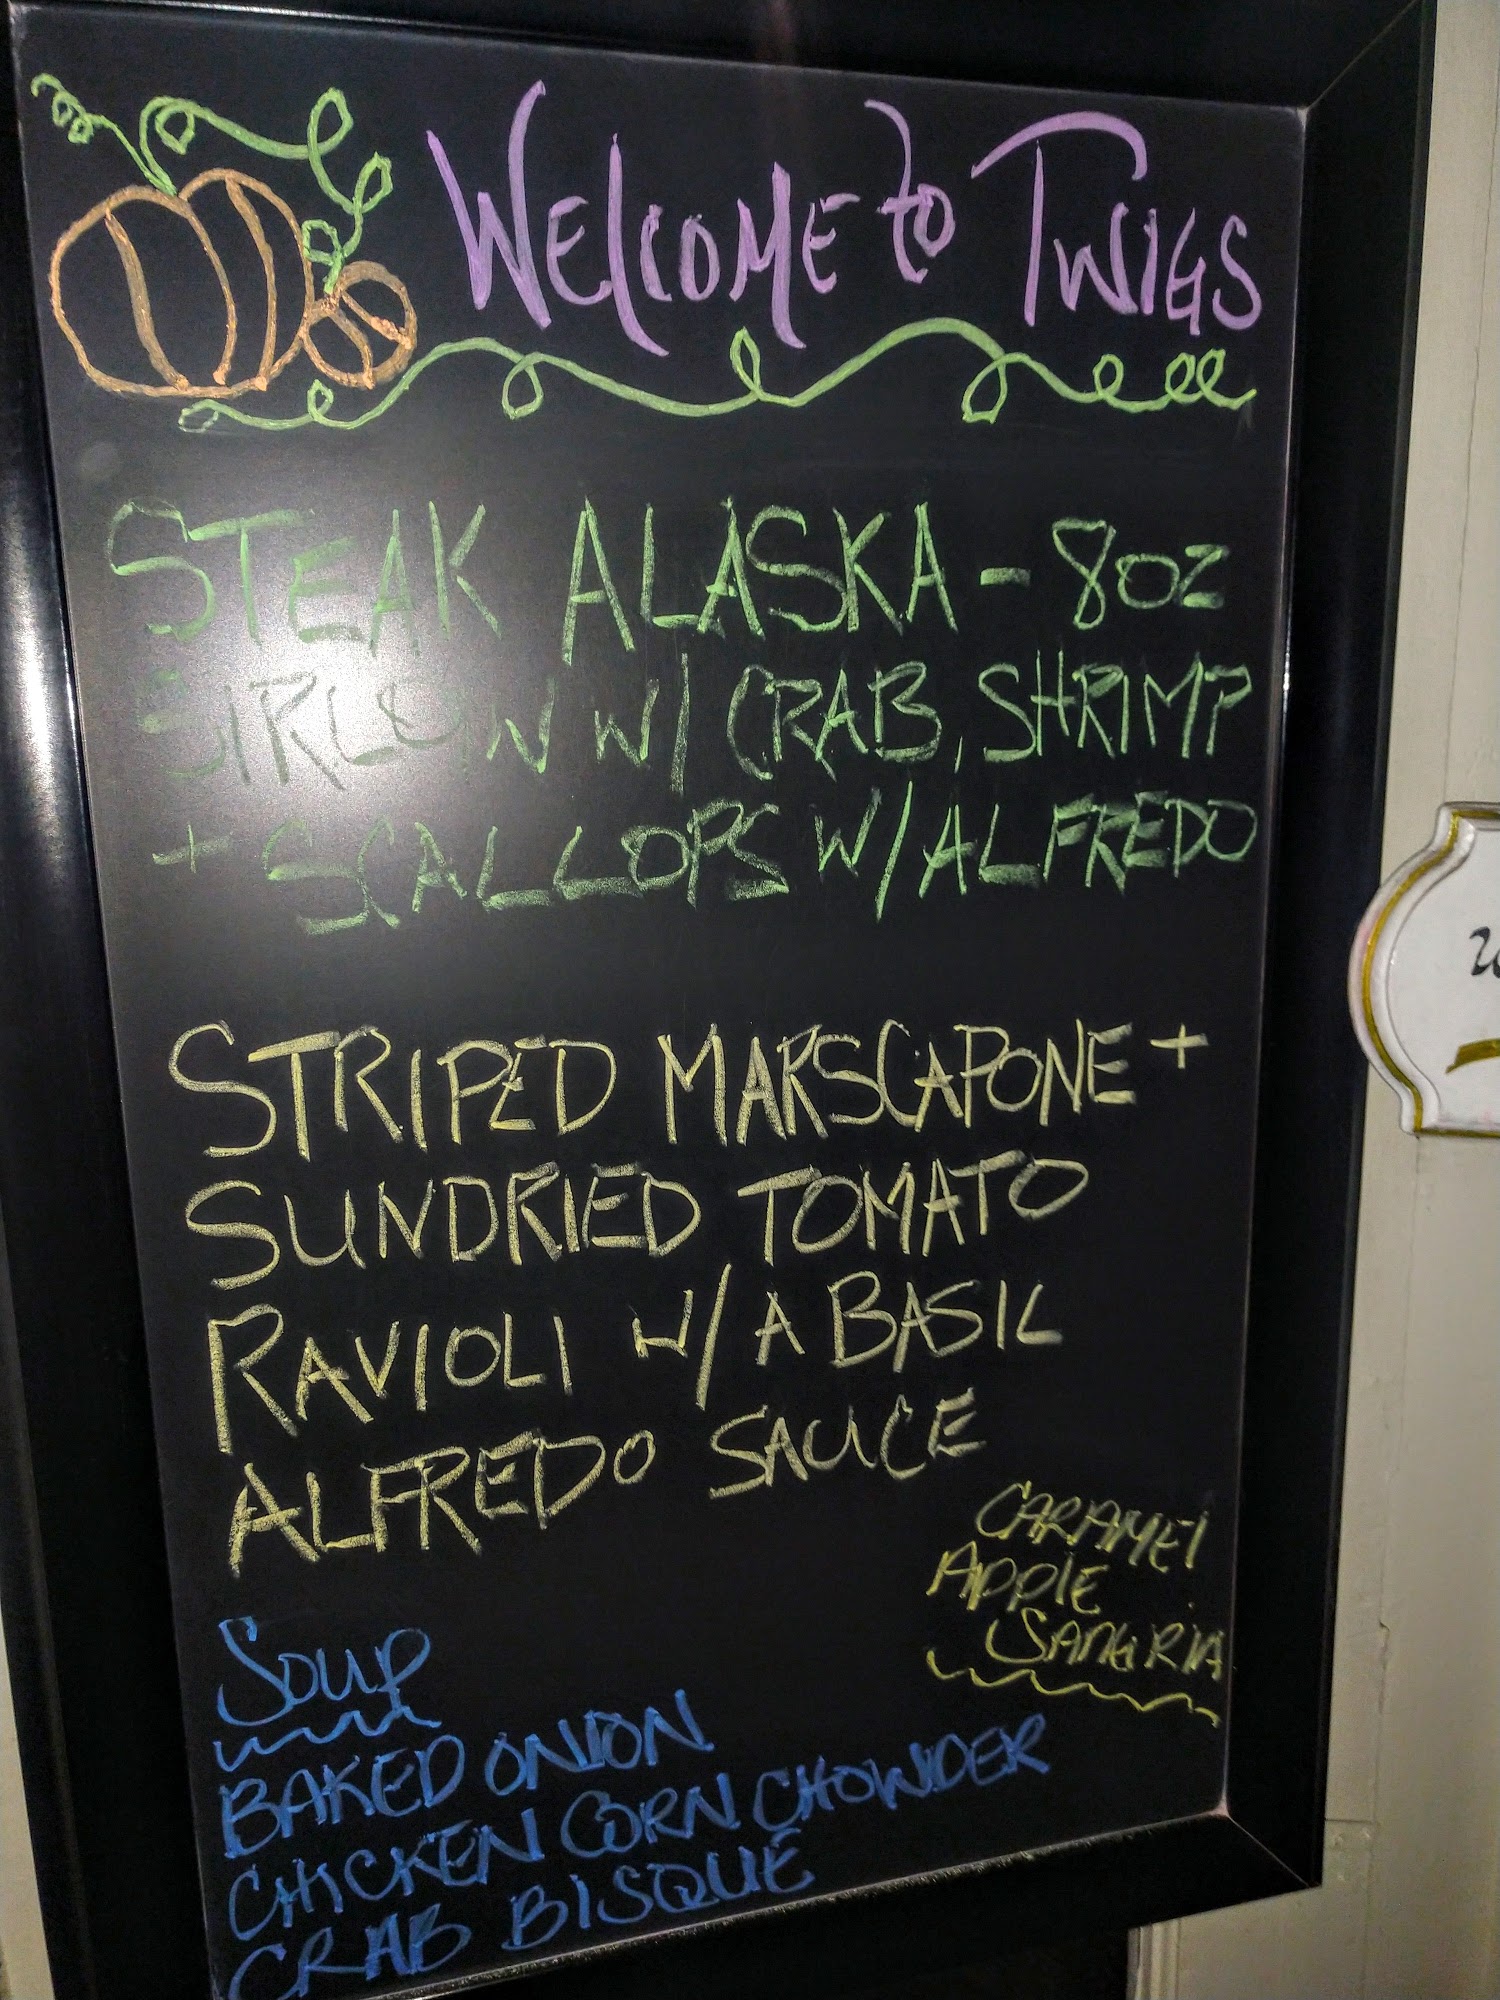 WELCOME to TWIGS
STEAK ALASKA - 8oz
SIRLOIN W/ CRAB, SHRIMP
+ SCALLOPS W/ ALFREDO
STRIPED MARSCAPONE +
SUNDRIED TOMATO
RAVIOLI W/ A BASIL
ALFREDO SAUCE
CARAMEl
APPlE
SANGRIA
SOUP
BAKED ONION
CHICKEN CORN CHOWDER
CRAB BISQUE